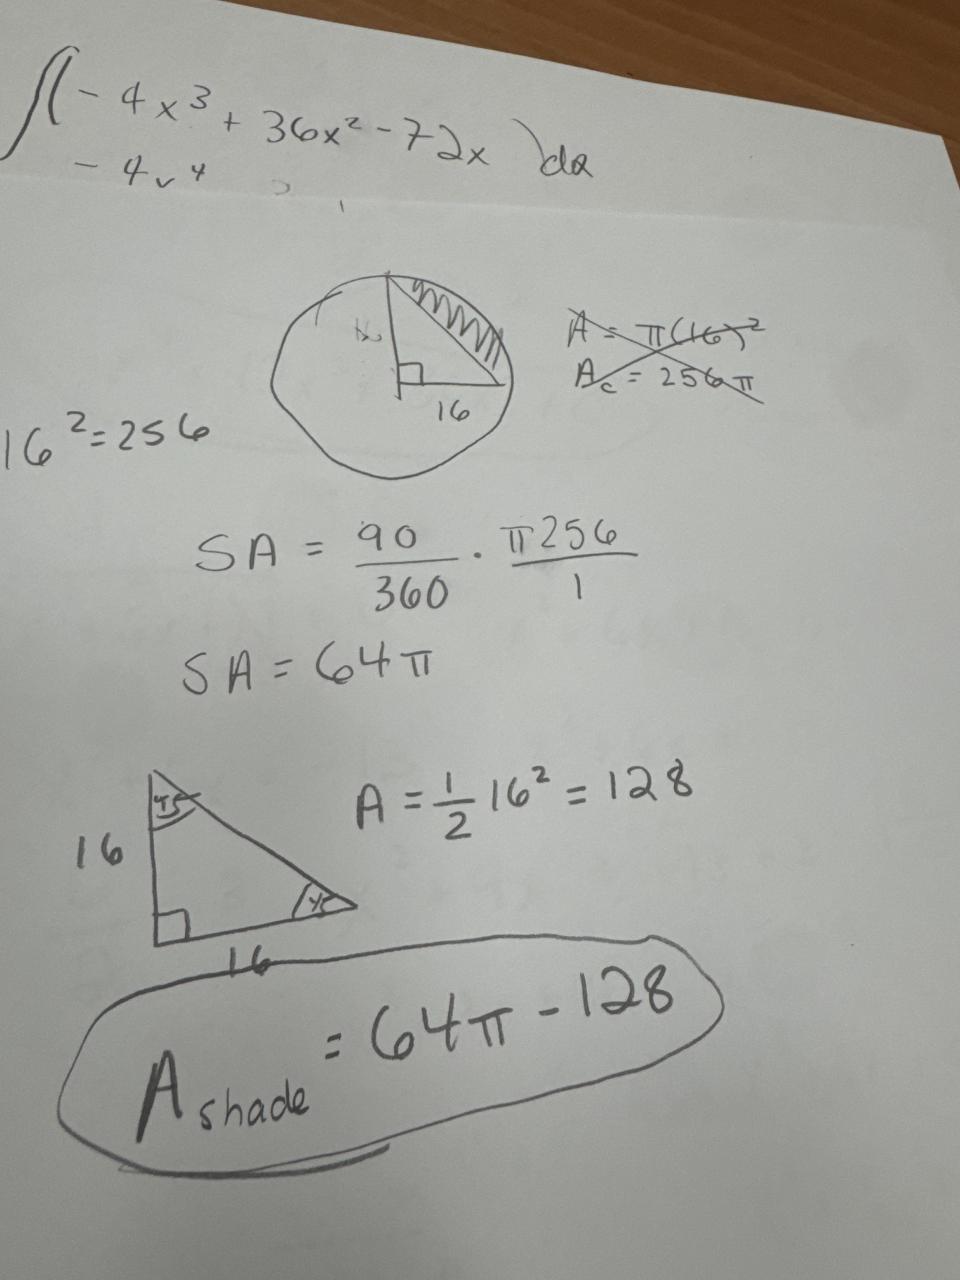 ∫(-4x³ + 36x² - 72x)dx
-4x⁴
16
A = π(16)²
A_c = 256π
16² = 256
SA = 90/360 · π256/1
SA = 64π
45
16
45
16
A = 1/2 16² = 128
A shade = 64π - 128